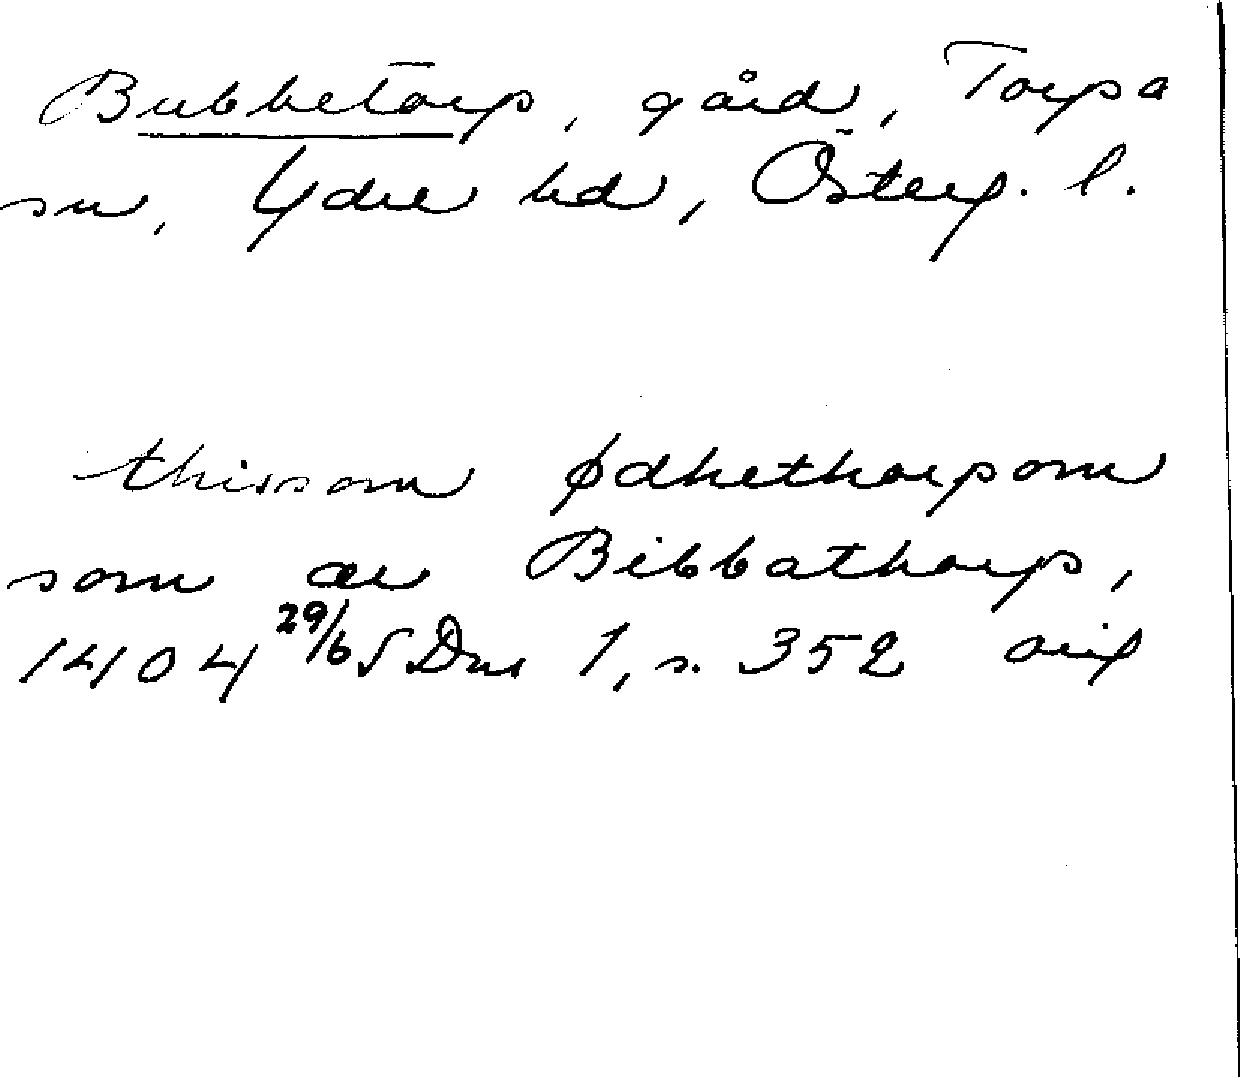 Bubbetorp, gård, Torpa
sn, Ydre hd, Österg. l.
thissom ødhethorpom
som ær Bibbathorp,
1404 29/6 SDns 1, s. 352 orig